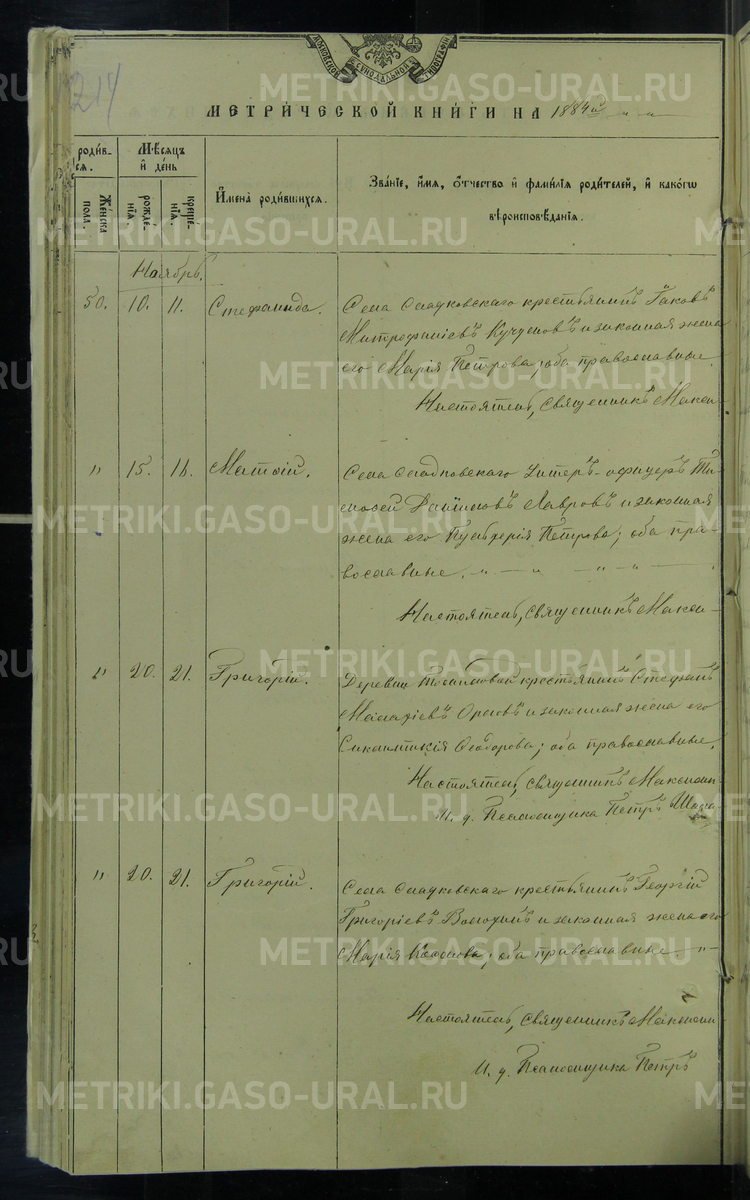 214
МОСКОВСКОЙ СѴНОДАЛЬНОЙ ТИПОГРАФІИ
МЕТРИЧЕСКОЙ КНИГИ НА 1884й
родив-
ся.
Женска
пола.
Мѣсяцъ
и день
рожде-
нія.
креще-
нія.
Имена родившихся.
Званіе, имя, отчество и фамилія родителей, и какого
вѣроисповѣданія.
Ноябрь.
50. 10. 11. Стефанида. Села Сладковскаго крестьянинъ Іаковъ
Митрофаніевъ и законная жена
его Марія Петрова; оба православные.
Настоятель, Священникъ Макси-
" 15. 18. Матѳій. Села Сладковскаго Унтеръ-офицеръ Ти-
моѳей Данииловъ Лавровъ и законная
жена его Пульхерія Петрова; оба пра-
вославные.
Настоятель, Священникъ Макси-
" 20. 21. Григорій. Деревни крестьянинъ Стефанъ
Малахіевъ Орловъ и законная жена его
Сикλитикія Ѳеодорова; оба православные.
Настоятель, Священникъ Максими-
И. д. Псаломщика Петръ
" 20. 21. Григорій. Села Сладковскаго крестьянинъ Георгій
Григоріевъ Волохинъ и законная жена его
Марія; оба православные.
Настоятель, Священникъ Максими-
И. д. Псаломщика Петръ
METRIKI.GASO-URAL.RU